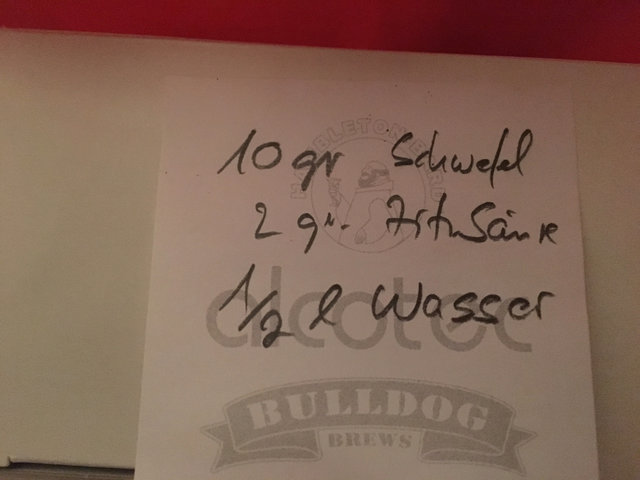 10 gr Schwefel
2 gr. Zitr. Säure
1/2 l Wasser
alcotec
BULLDOG
BREWS